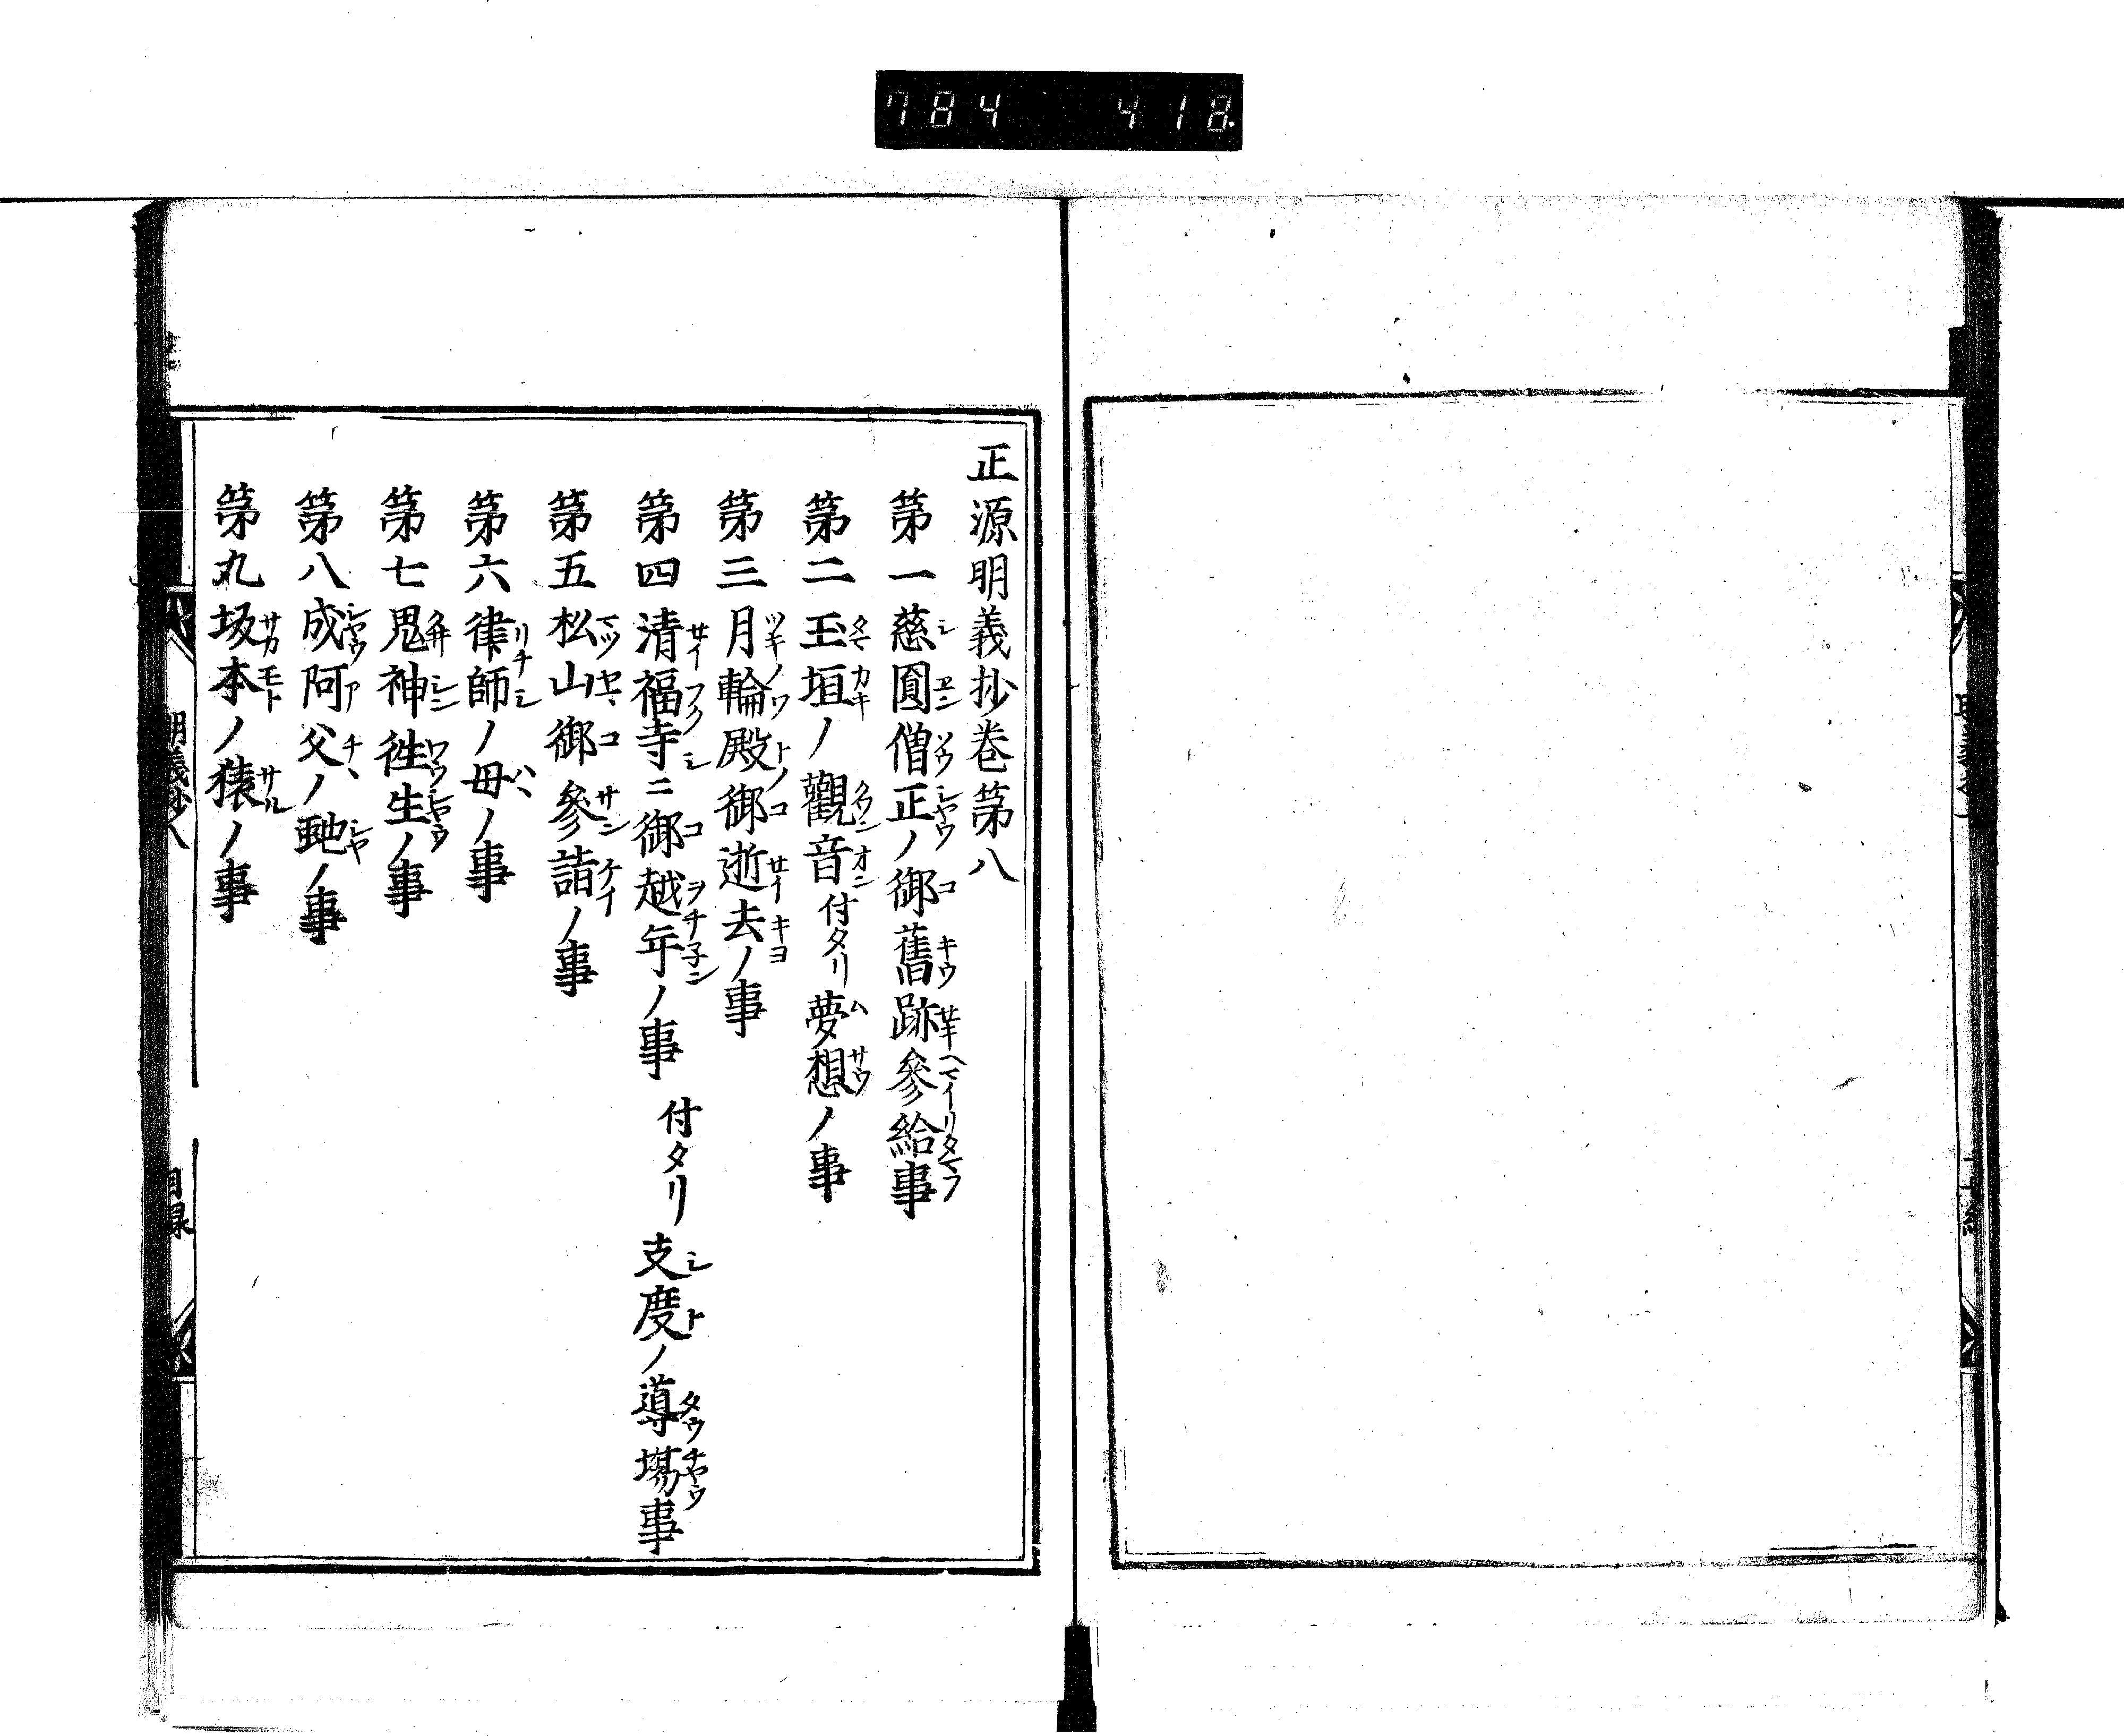 784 418
正源明義抄卷第八
第一慈圓僧正ノ御舊跡參給事
第二玉垣ノ觀音付タリ夢想ノ事
第三月輪殿御逝去ノ事
第四清福寺ニ御越年ノ事 付タリ支度ノ導場事
第五松山御參詣ノ事
第六律師ノ母ノ事
第七鬼神徃生ノ事
第八成阿父ノ虵ノ事
第九坂本ノ猿ノ事
明義抄八 目録